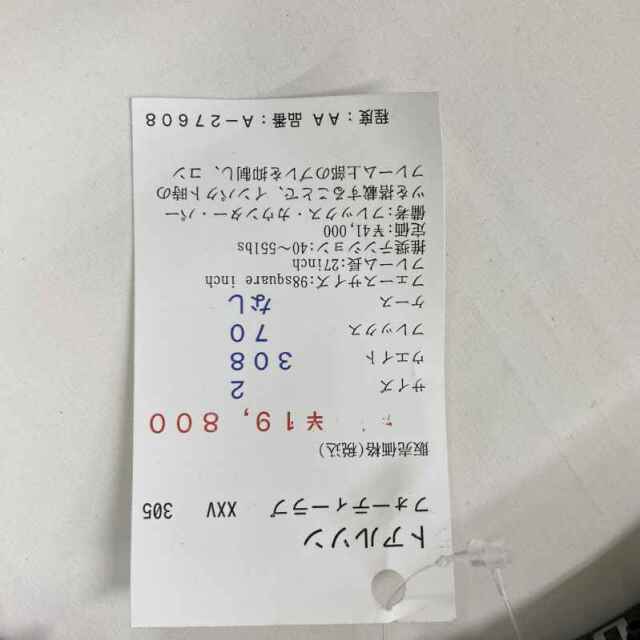 トアルソン
フォーティーラブ XXV 305
販売価格(税込)
¥19,800
サイズ 2
ウエイト 308
フレックス 70
ケース なし
フェースサイズ:98square inch
フレーム長:27inch
推奨テンション:40~55lbs
定価:¥41,000
備考:フレックス・カウンター・バー
ツを搭載することで、インパクト時の
フレーム上部のブレを抑制し、コン
程度:AA 品番:A-27608